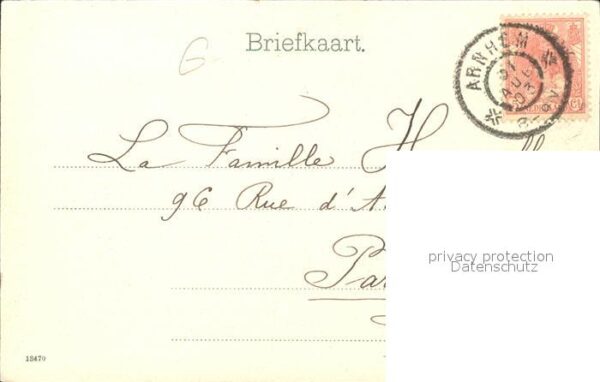 Briefkaart.
G
ARNHEM
AUG
03
La Famille
96 Rue d'A
Pa
privacy protection
Datenschutz
13470